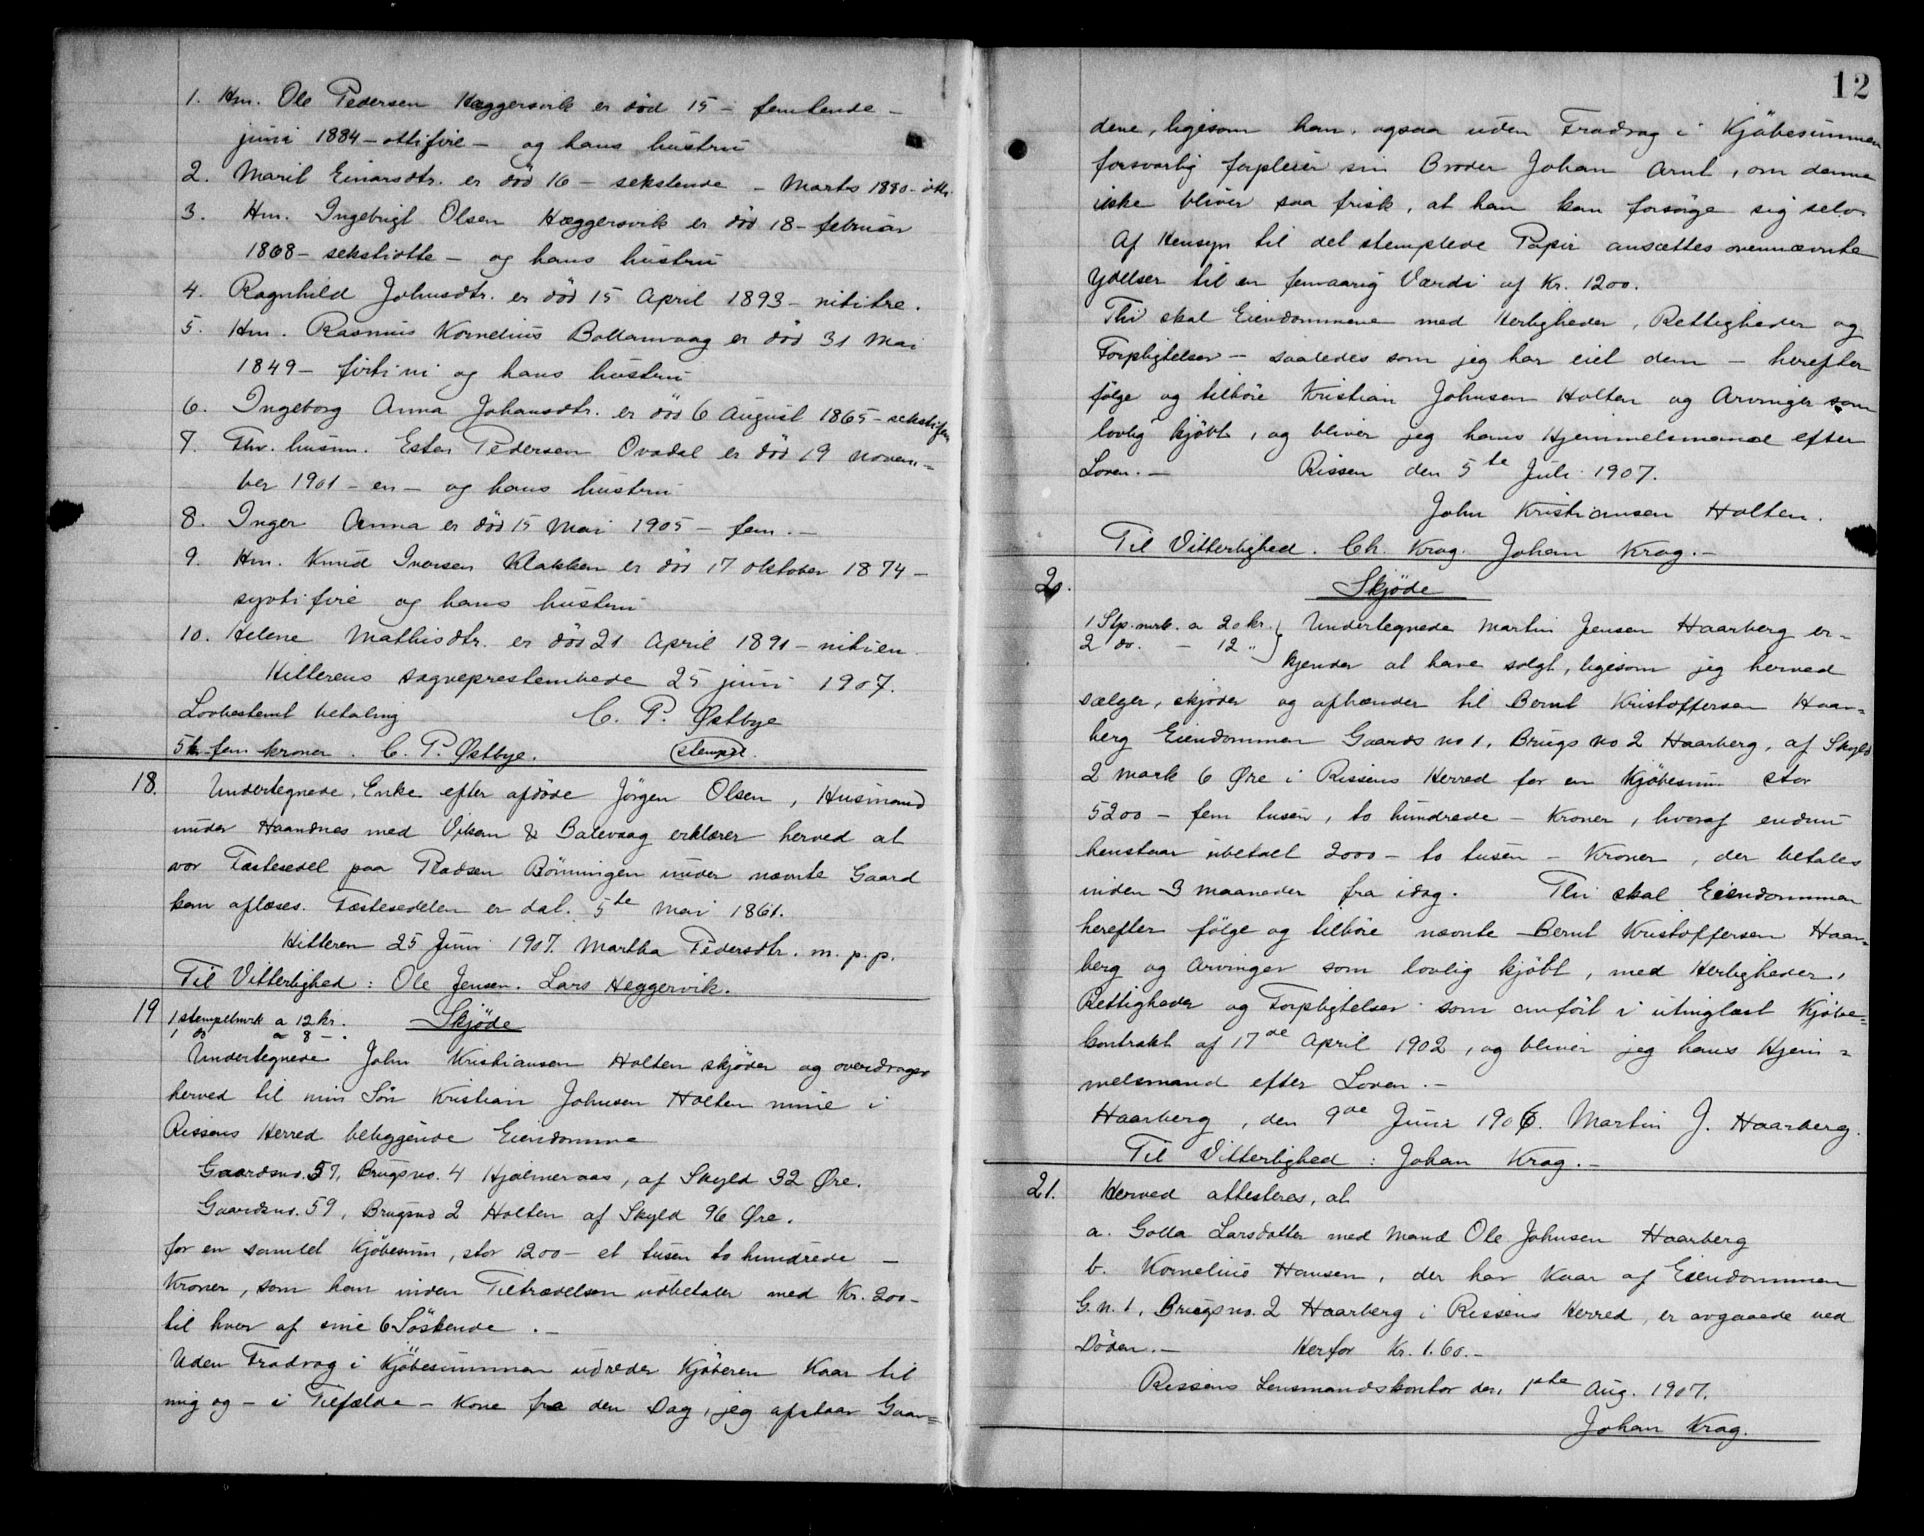 1. Hm. Ole Pedersen Hæggersvik er död 15 - femtende -
juni 1884 - ottifire - og hans hustru
2. Marit Einarsdtr. er död 16 - sekstende - Marts 1880 - otti.
3. Hm. Ingebrigt Olsen Hæggersvik er död 18 - februar
1868 - sekstiotte - og hans hustru
4. Ragnhild Johnsdtr. er död 15 April 1893 - nititre.
5. Hm. Rasmus Kornelius Boltanvaag er död 31 Mai
1849 - firti ni og hans hustru
6. Ingeborg Anna Johansdtr. er död 6 August 1865 - sekstifem
7. Fhv. husm. Esten Pedersen Ovadal er död 19 novem=
ber 1901 - en - og hans hustru
8. Inger Anna er död 15 Mai 1905 - fem. -
9. Hm. Knud Iversen Klakken er död 17 oktober 1874 -
sytti fire og hans hustru
10. Helene Mathisdtr. er död 21 April 1891 - nitien.
Hitterens sogneprestembede 25 juni 1907.
Lovbestemt betaling C. P. Østbye
5 kr - fem kroner. C. P. Østbye. (stempel.)
18. Undertegnede, Enke efter afdöde Jörgen Olsen, Husmand
under Haandnes med Viken & Balevaag erklærer herved at
vor Fæstesedel paa Pladsen Bönningen under nævnte Gaard
kan aflæses. Fæstesedelen er dat. 5te Mai 1861.
Hitteren 25 Juni 1907. Martha Pedersdtr. m. p. p.
Til Vitterlighed: Ole Jensen. Lars Heggervik.
19 1 stempelmrk a 12 kr. Skjöde
1 do a 8 - .
Undertegnede John Kristiansen Holten skjöder og overdrager
herved til min Sön Kristian Johnsen Holten mine i
Rissens Herred beliggende Eiendomme
Gaardsno. 57, Brugsno. 4 Hjalmeraas, af Skyld 32 Øre.
Gaardsno. 59, Brugsno 2 Holten af Skyld 96 Øre.
for en samlet Kjöbesum, stor 1200 - et tusen to hundrede -
Kroner, som han inden Tiltrædelsen udbetaler med Kr. 200 -
til hver af sine 6 Söskende. -
Uden Fradrag i Kjöbesummen udreder Kjöberen Kaar til
mig og - i Tilfælde - Kone fra den Dag, jeg afstaar Gaar=
12
dene, ligesom han, ogsaa uden Fradrag i Kjöbesummen
forsvarlig forpleier sin Broder Johan Arnt, om denne
ikke bliver saa frisk, at han kan forsörge sig selv.
Af Hensyn til det stemplede Papir ansættes ovennævnte
Ydelser til en femaarig Værdi af Kr. 1200.
Thi skal Eiendommene med Herligheder, Rettigheder og
Forpligtelser - saaledes som jeg har eiet dem - herefter
fölge og tilhöre Kristian Johnsen Holten og Arvinger som
lovlig kjöbt, og bliver jeg hans Hjemmelsmand efter
Loven. - Rissen den 5te Juli 1907.
John Kristiansen Holten.
Til Vitterlighed. Ch. Krog. Johan Krog. -
20. Skjöde
1 Stp. mrk. a 20 kr. Undertegnede Martin Jensen Haarberg er-
2 do. - 12 " kjender at have solgt, ligesom jeg herved
sælger, skjöder og afhænder til Bernt Kristoffersen Haar=
berg Eiendommen Gaards no 1, Brugs no 2 Haarberg, af Skyld
2 mark 6 Øre i Rissens Herred for en Kjöbesum stor
5200 - fem tusen, to hundrede - Kroner, hvoraf endnu
henstaar ubetalt 2000 - to tusen - Kroner, der betales
inden 3 maaneder fra idag. Thi skal Eiendommen
herefter fölge og tilhöre nævnte Bernt Kristoffersen Haar=
berg og Arvinger som lovlig kjöbt, med Herligheder,
Rettigheder og Forpligtelser som anfört i utinglæst Kjöbe=
Contrakt af 17de April 1902, og bliver jeg hans Hjem=
melsmand efter Loven. -
Haarberg, den 9de Juni 1906. Martin J. Haarberg.
Til Vitterlighed: Johan Krog. -
21. Herved attesteres, at
a. Golla Larsdatter med Mand Ole Johnsen Haarberg
b. Kornelius Hansen, der har Kaar af Eiendommen
G. n. 1, Brugsno. 2 Haarberg i Rissens Herred, er avgaaede ved
Döden. - Herfor Kr. 1.60. -
Rissens Lensmandskontor den 1ste Aug. 1907.
Johan Krog.